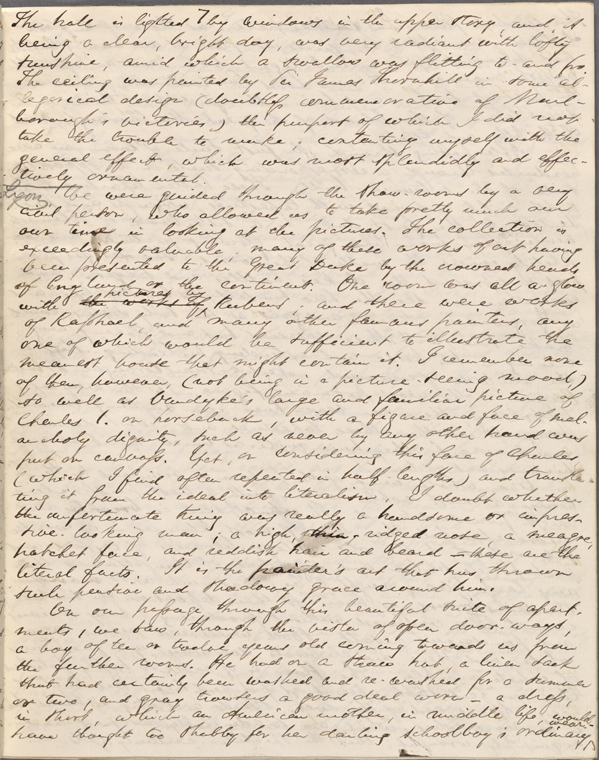 The hall is lighted by windows in the upper story, and, it
being a clear, bright day, was very radiant with lofty
sunshine, amid which a swallow was flitting to-and-fro.
The ceiling was painted by Sir James Thornhill in some al-
legorical design (doubtless commemorative of Marl-
borough's victories,) the purport of which I did not
take the trouble to make; contenting myself with the
general effect, which was most splendidly and effec-
tively ornamental.
We were guided through the show-rooms by a very
civil person, who allowed us to take pretty much our
own time in looking at the pictures. The collection is
exceedingly valuable, many of these works of art having
been presented to the Great Duke by the crowned heads
of England or the continent. One room was all a-glow
with pictures by Rubens; and there were works
of Raphael, and many other famous painters, any
one of which would be sufficient to illustrate the
meanest house that might contain it. I remember none
of them, however, (not being in a picture-seeing mood,)
so well as Vandyke's large and familiar picture of
Charles I. on horseback, with a figure and face of mel-
ancholy dignity, such as never by any other hand was
put on canvass. Yet, on considering this face of Charles
(which I find often repeated in half lengths) and transla-
ting it from the ideal into literalism, I doubt whether
the unfortunate king was really a handsome or impres-
sive-looking man; a high, thin-ridged nose, a meagre,
hatchet face, and reddish hair and beard—these are the
literal facts. It is the painter's art that has thrown
such pensive and shadowy grace around him.
On our passage through this beautiful suite of apart-
ments, we saw, through the vista of open door-ways,
a boy of ten or twelve years old coming towards us from
the farther rooms. He had on a straw hat, a linen sack
that had certainly been washed and re-washed for a summer
or two, and gray trowsers a good deal worn—a dress,
in short, which an American mother, in middle life, would
have thought too shabby for her darling schoolboy's ordinary wear.